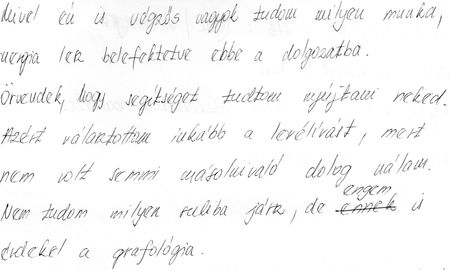 Mivel én is végzős vagyok tudom milyen munka,
energia lesz belefektetve ebbe a dolgozatba.
Örvendek, hogy segítséget tudtam nyújtani neked.
Azért választottam inkább a levélírást, mert
nem volt semmi másolnivaló dolog nálam.
Nem tudom milyen suliba jársz, de ennek engem is
érdekel a grafológia.